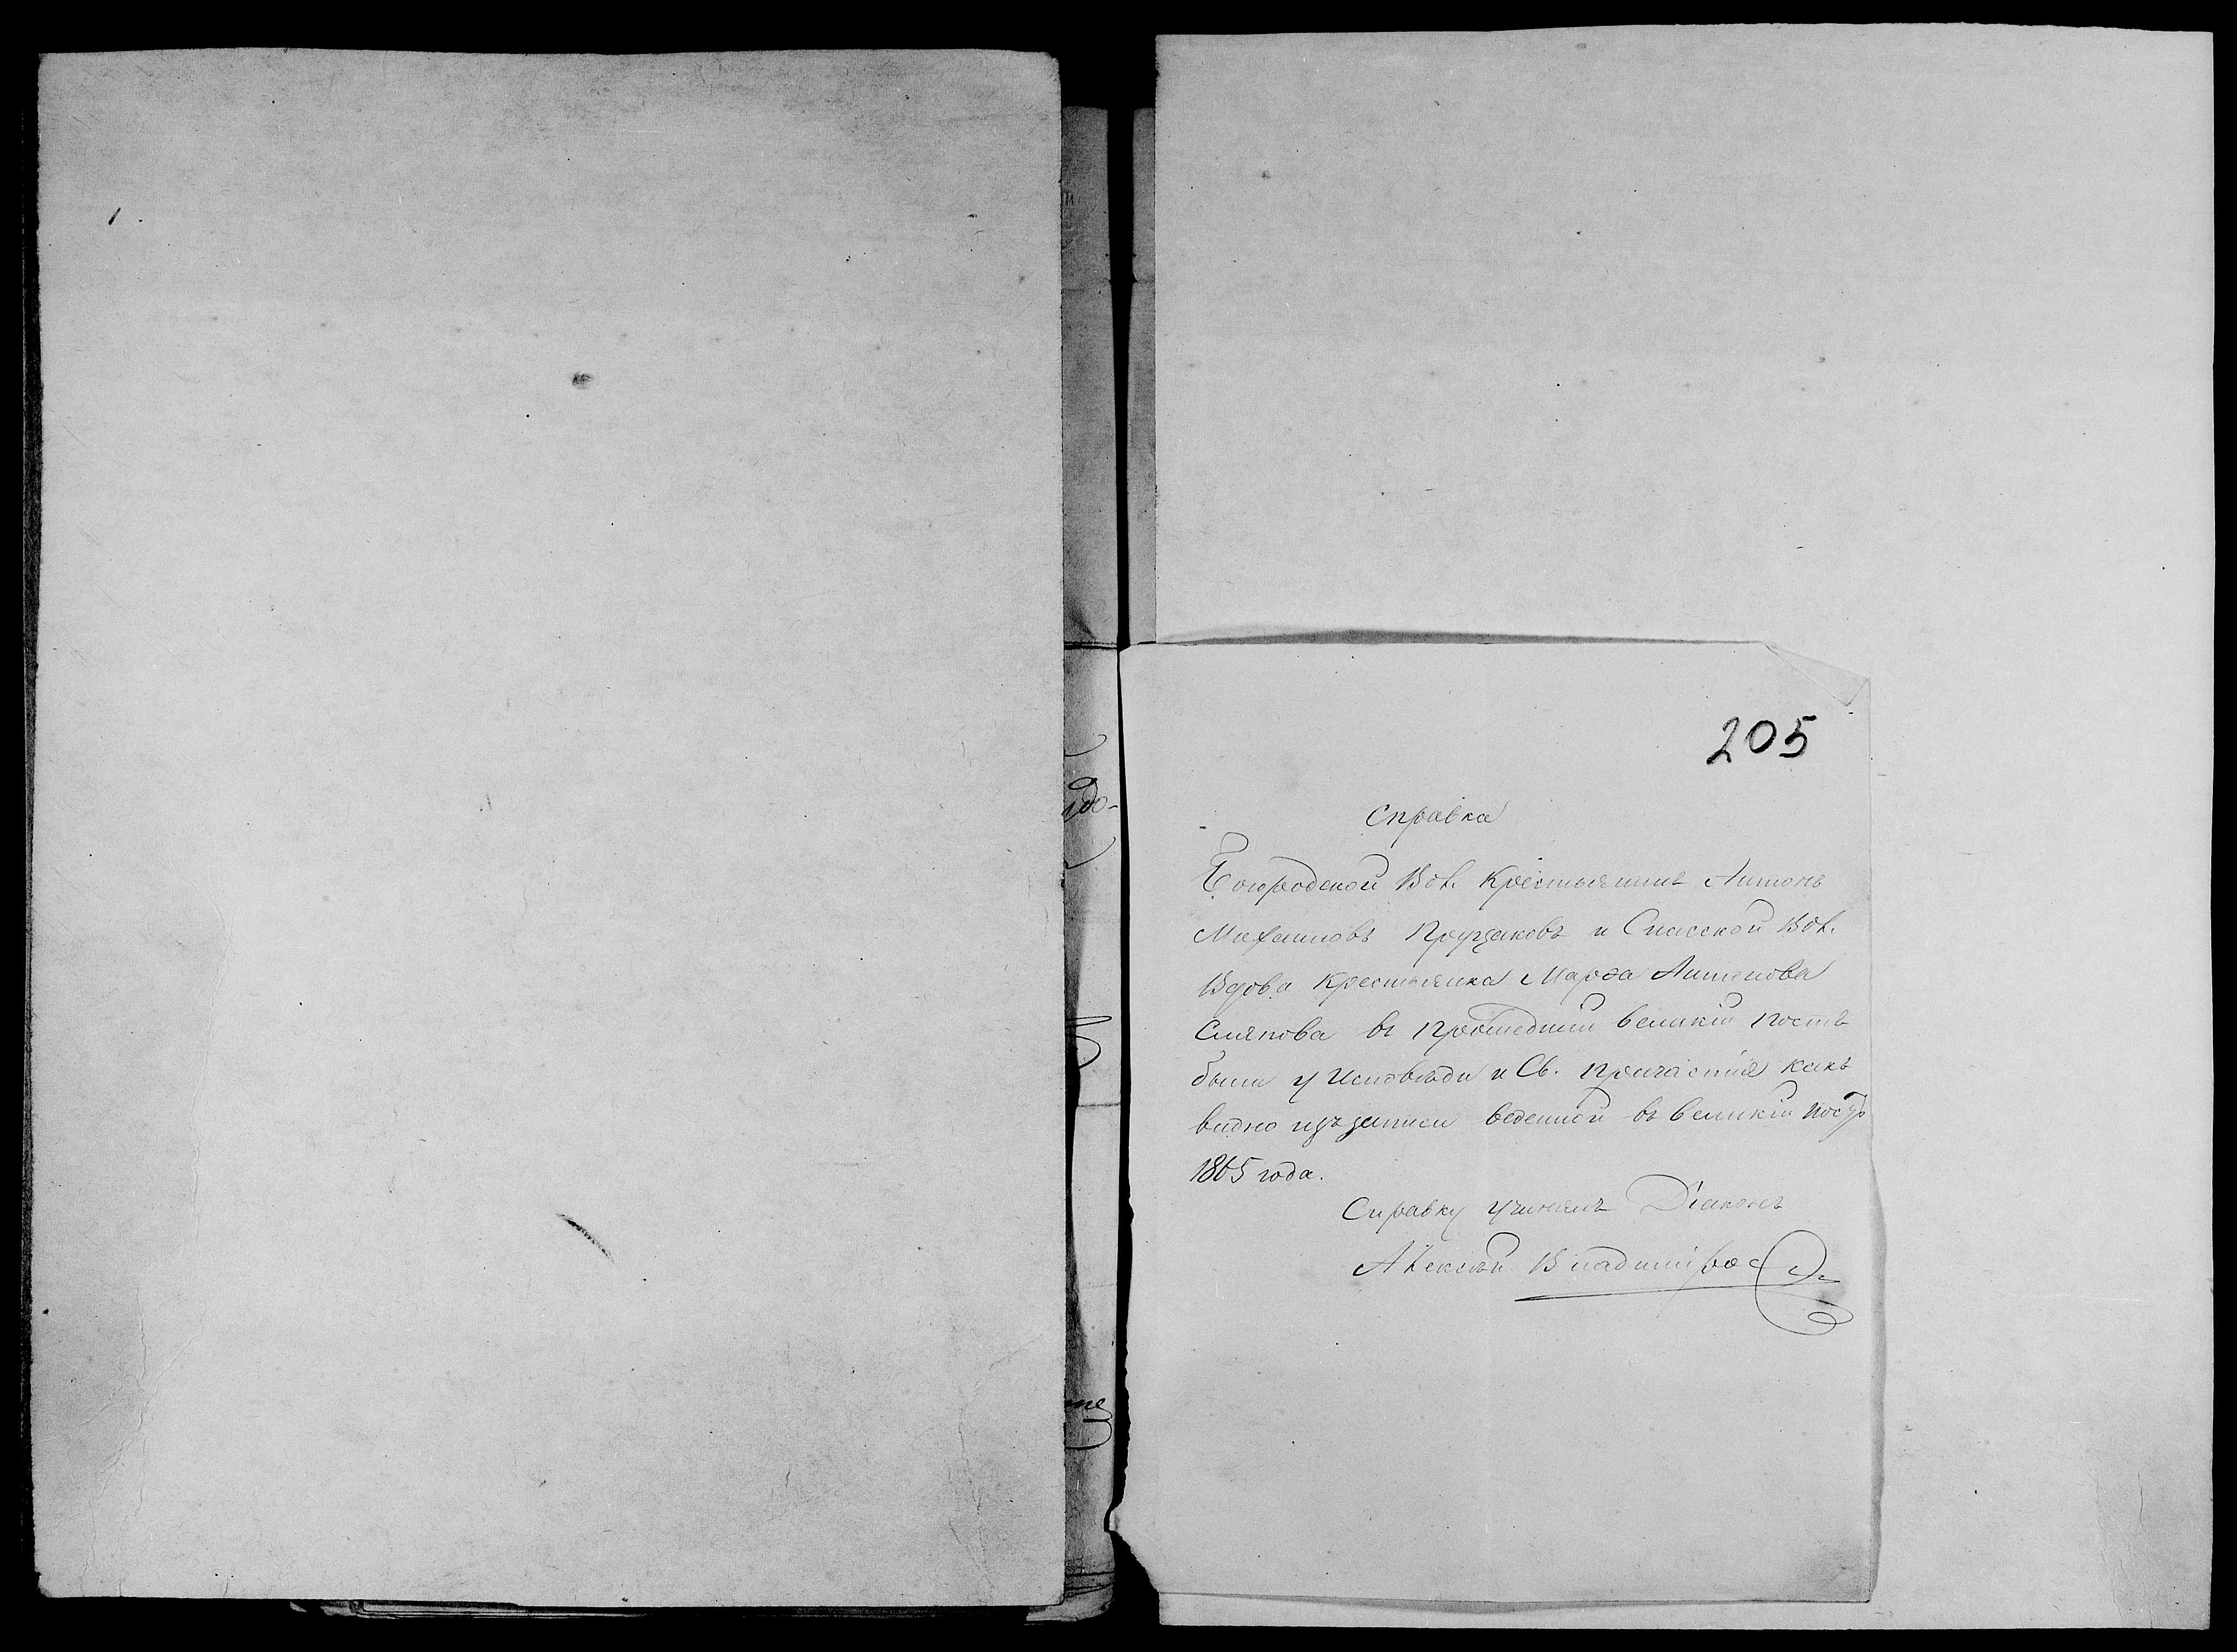 205
Справка
Богородской Вол. Крестьянинъ Антонъ
Михаиловъ Прузаковъ и Спасской Вол.
Вдова Крестьянка Марѳа Антонова
въ прошедшій великій постъ
были у Исповѣди и Св. причастія какъ
видно изъ записи веденной въ великій постъ
1865 года.
Справку учинилъ Діаконъ
Алексѣй Владиміровъ